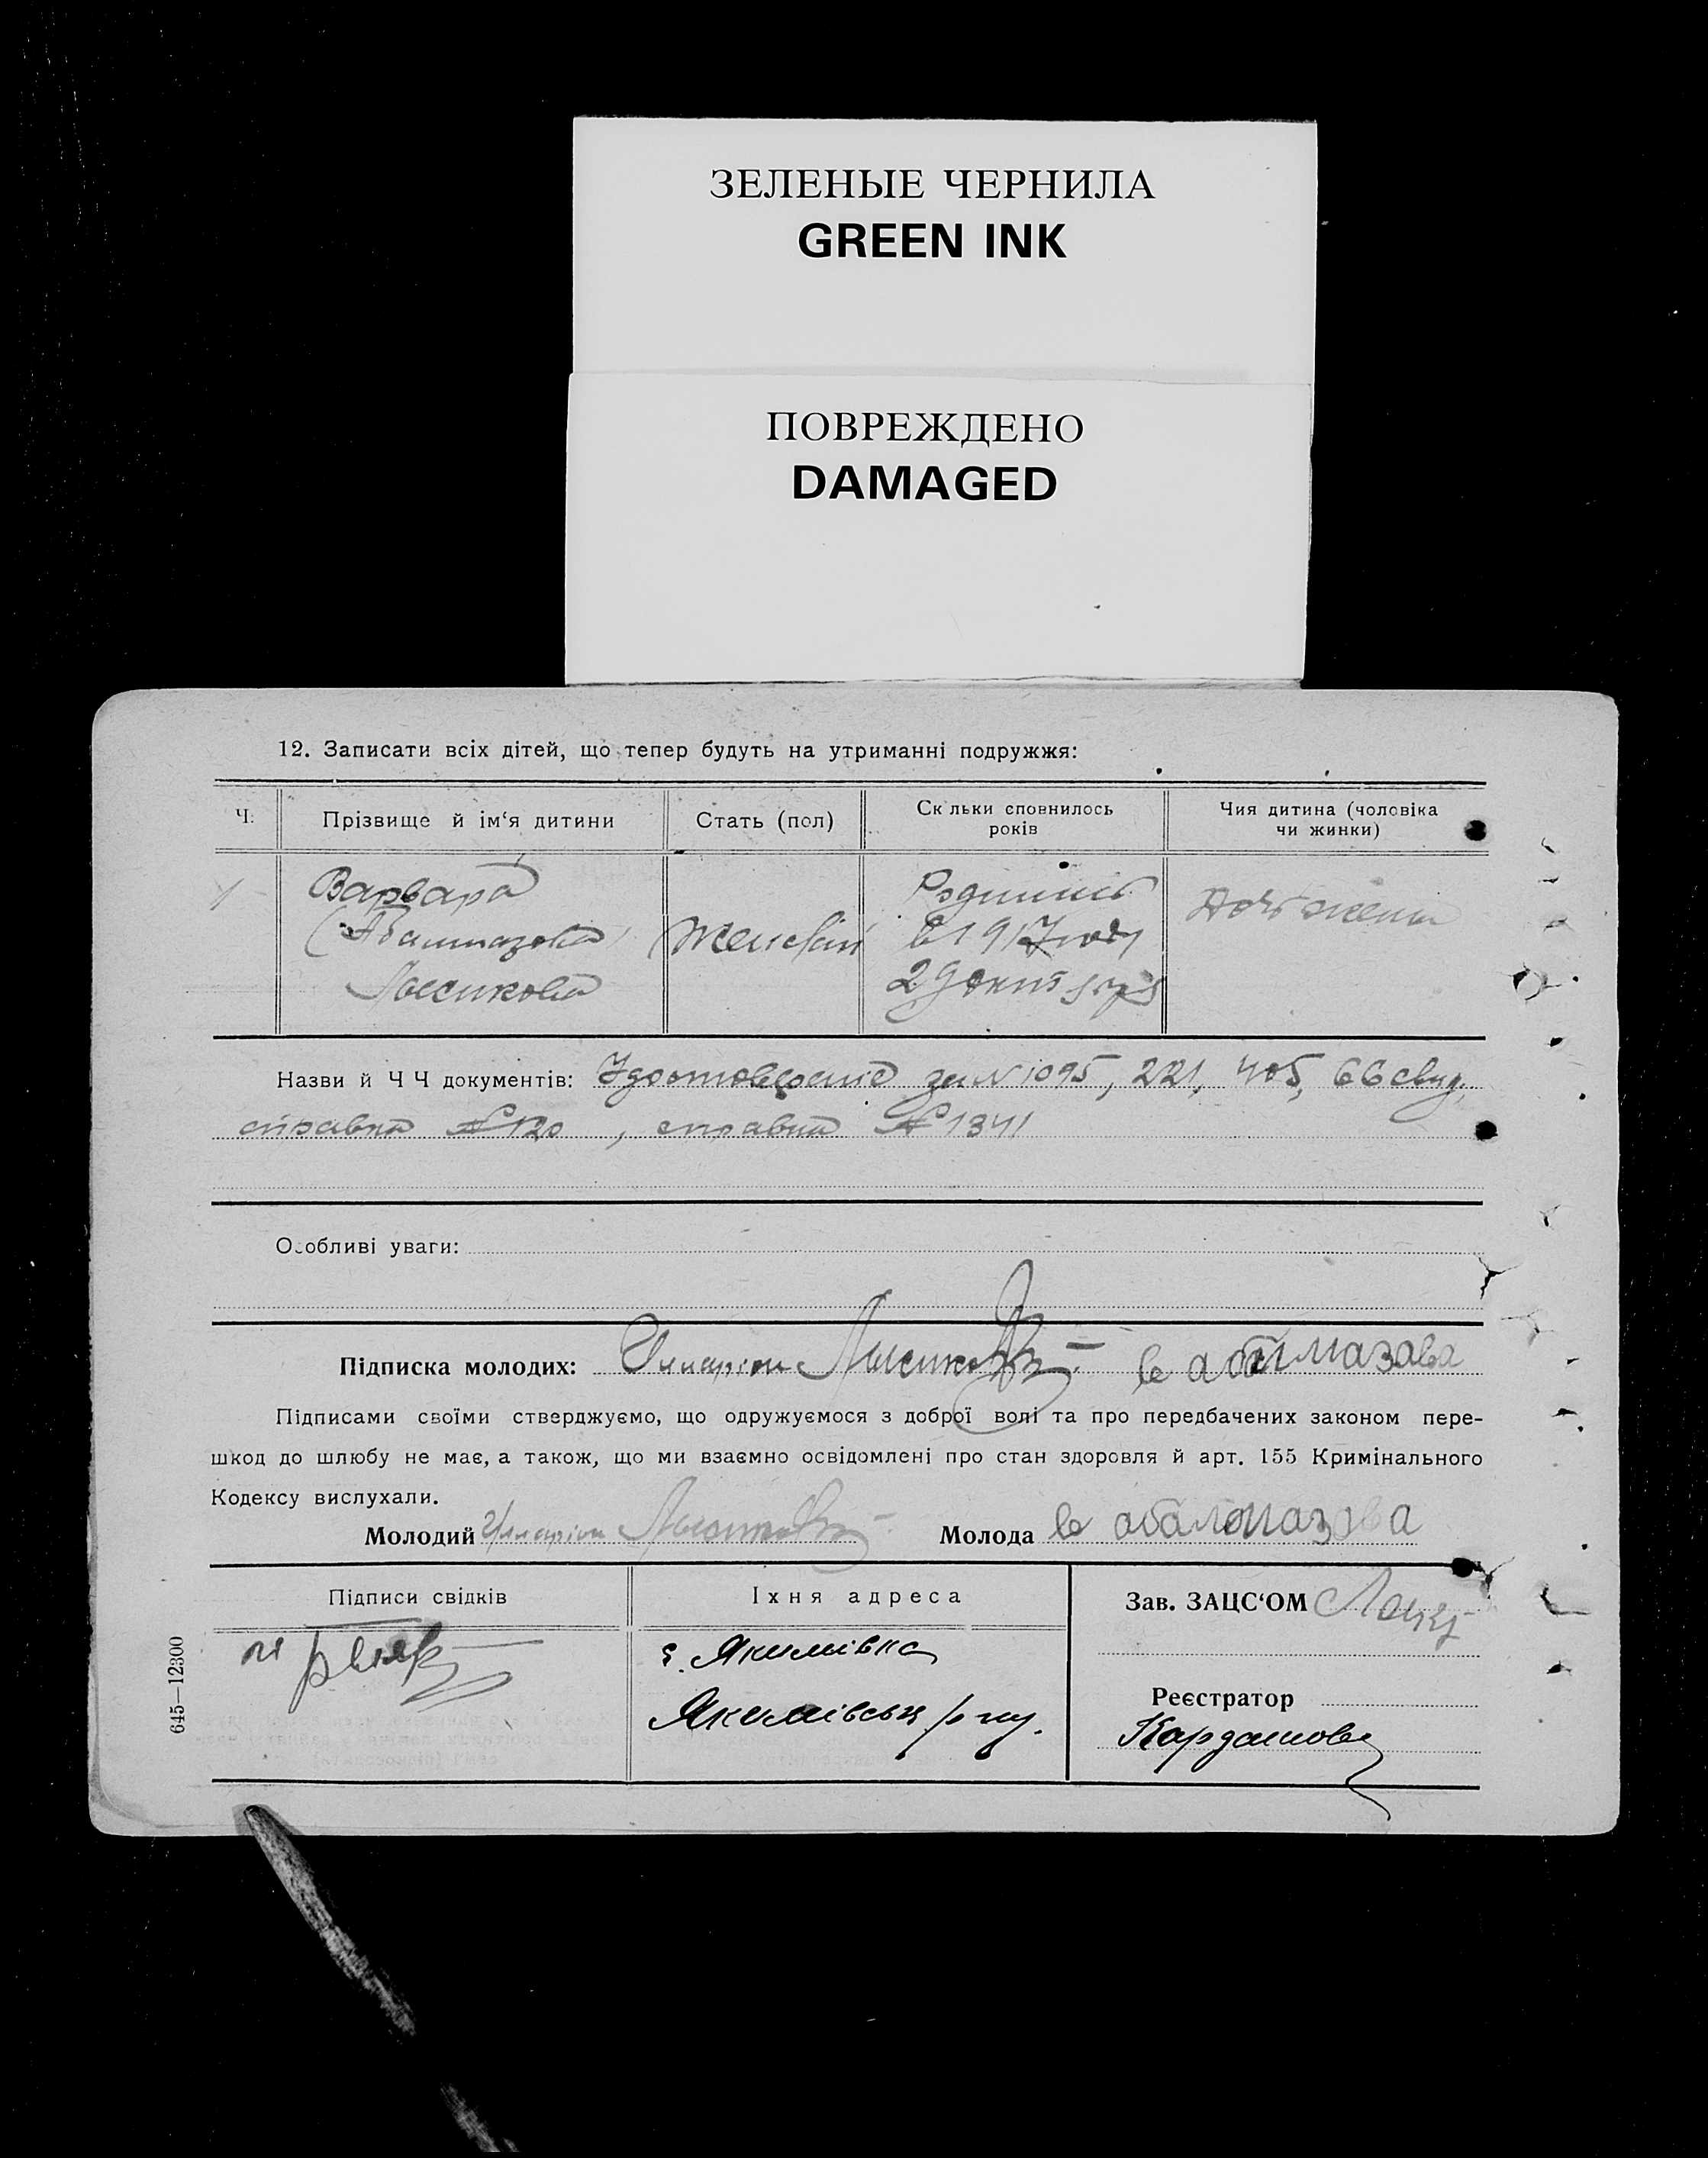 ЗЕЛЕНЫЕ ЧЕРНИЛА
GREEN INK
ПОВРЕЖДЕНО
DAMAGED
12. Записати всіх дітей, що тепер будуть на утриманні подружжя:
Ч. Прізвище й ім‘я дитини Стать (пол) Ск льки сповнилось років Чия дитина (чоловіка чи жинки)
1 Варвара
в 1917 году
Лысикова
29 октября
Назви й Ч Ч документів: за № 1095, 221, 405, 66 свид,
справка № 120, справка № 1341
Особливі уваги:
Підписка молодих: в абалмазава
Підписами своїми стверджуємо, що одружуємося з доброї волі та про передбачених законом пере-
шкод до шлюбу не має, а також, що ми взаємно освідомлені про стан здоровля й арт. 155 Кримінального
Кодексу вислухали.
Молодий Молода в абалмазова
Підписи свідків Їхня адреса Зав. ЗАЦС‘ОМ
с. Якимівка
Реєстратор
Якимівськ р-ну.
Кардашова
645—12300